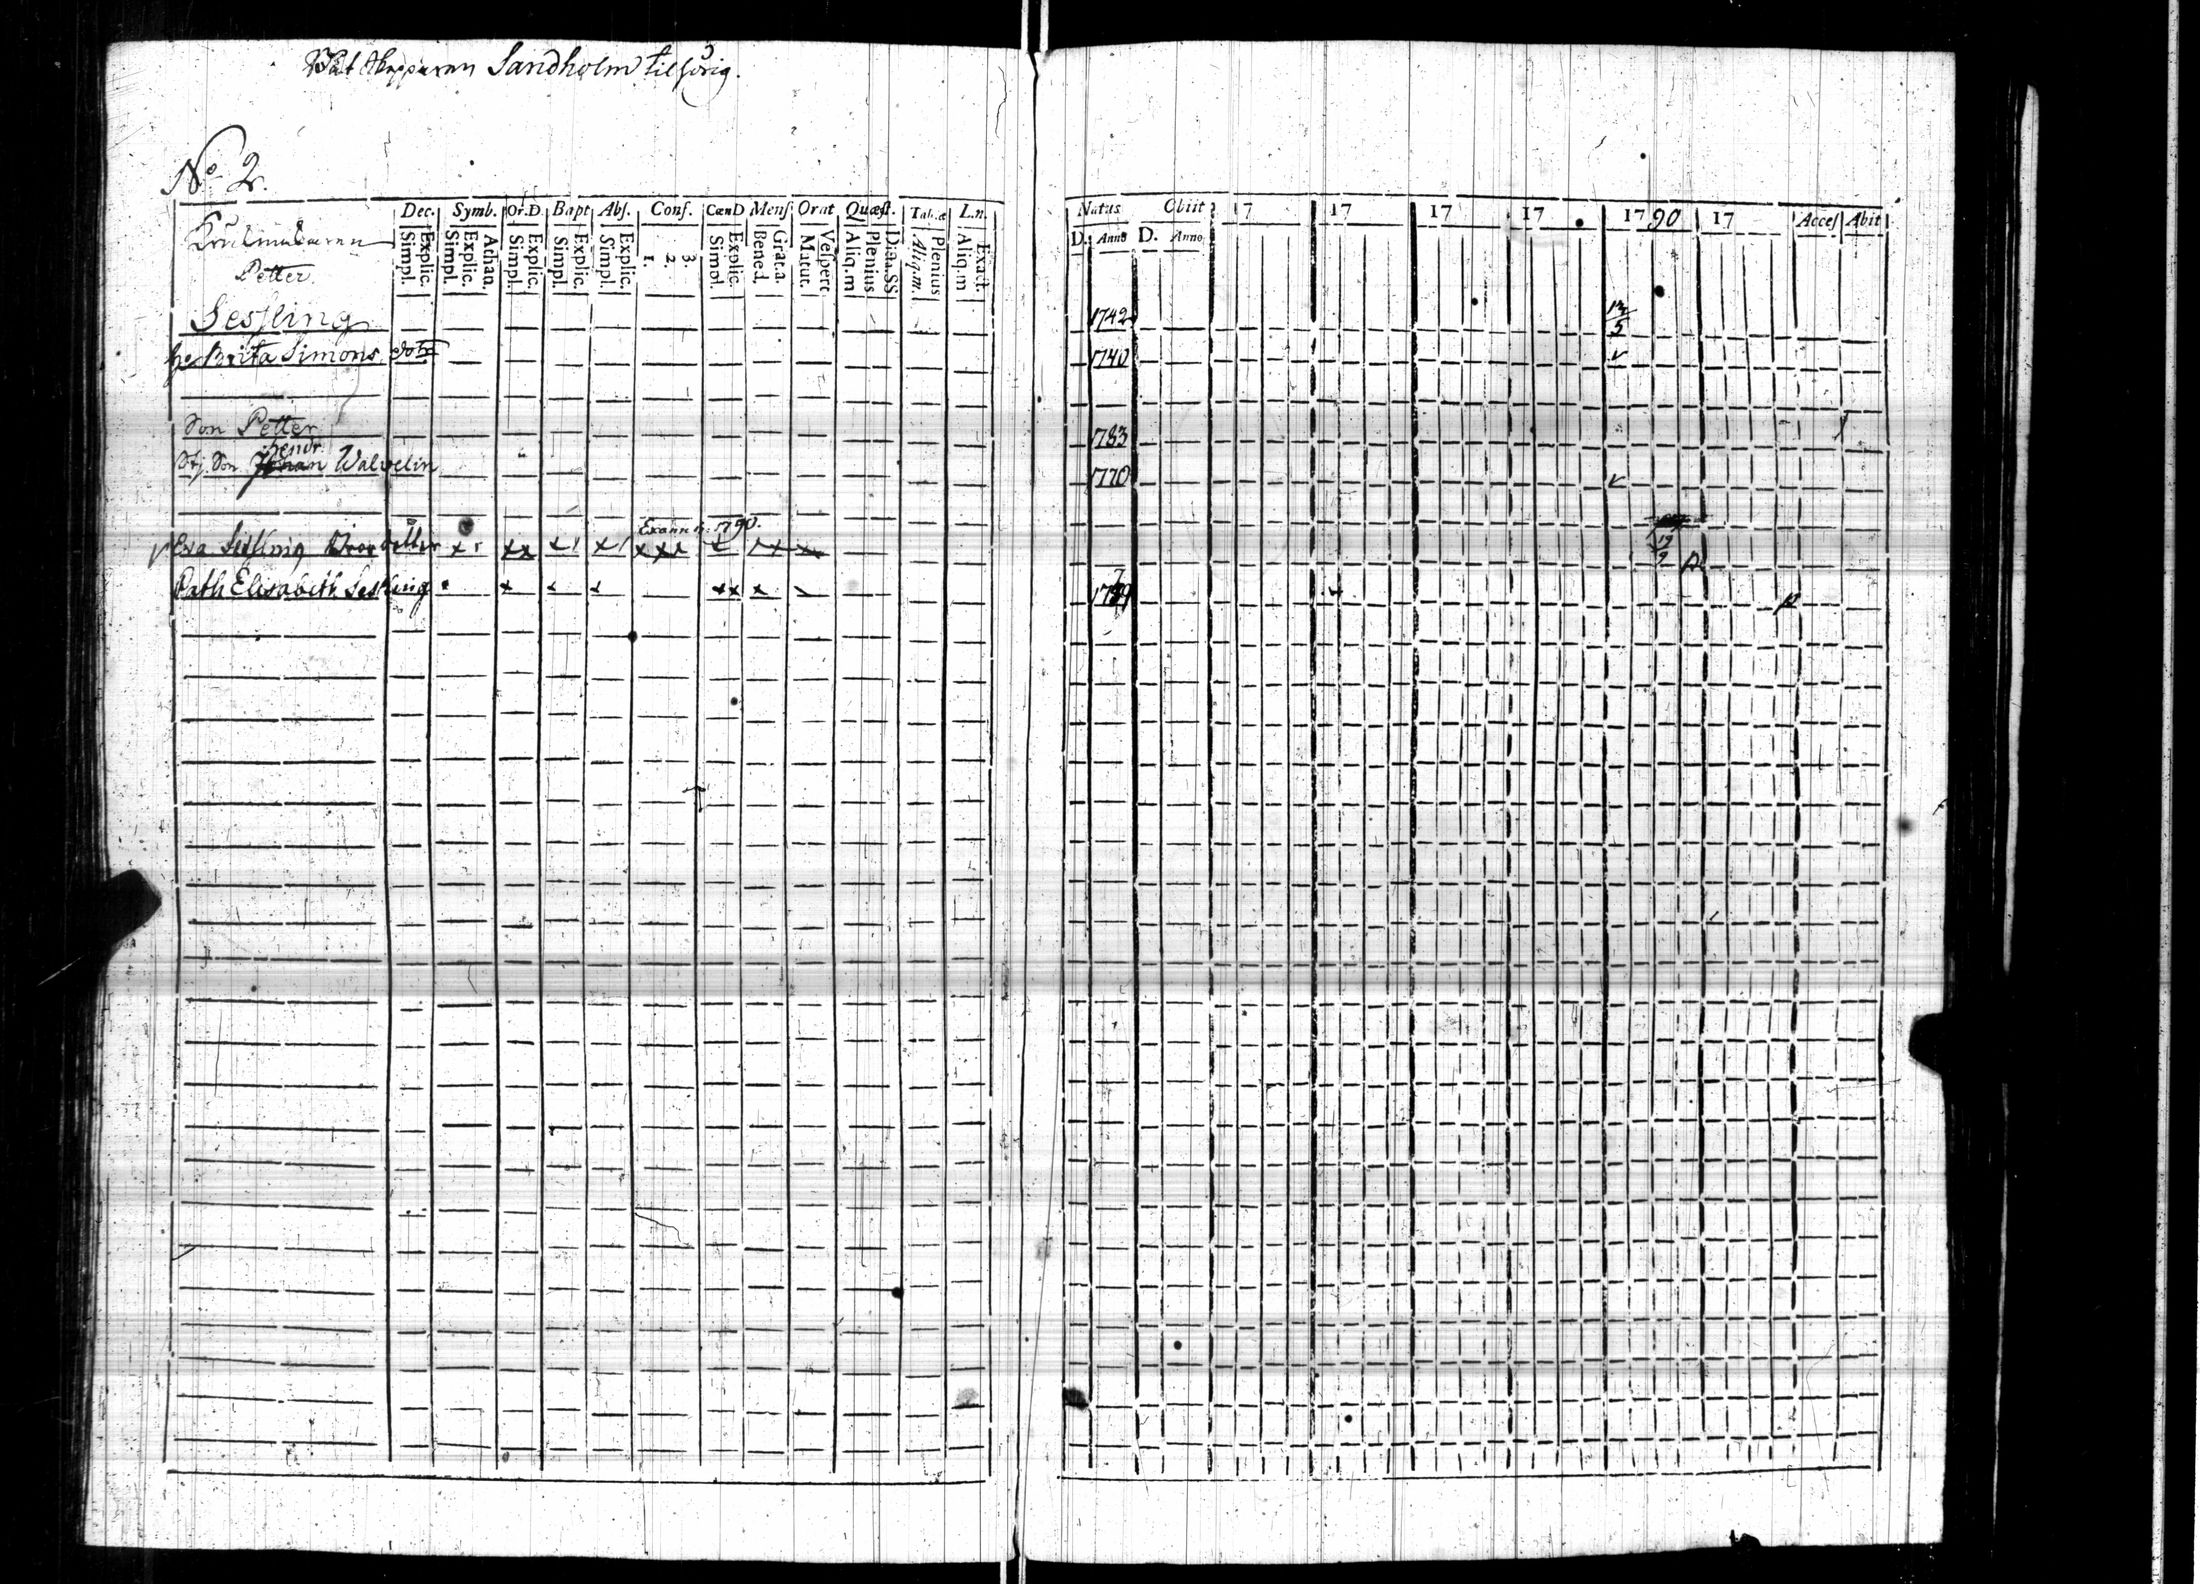 Skepparen Sandholm tilhörig.
No 2.
Dec. Symb. Or.D Bapt Abs. Conf. CœnD Mens Orat Quæst. Tab.æ L.n.
Simpl. Explic. Simpl. Explic. Athan. Simpl. Explic. Simpl. Explic. Simpl. Explic. 1. 2. 3. Simpl. Explic. Bened. Grat.a. Matut. Vespert Aliq.m Plenius D:an.SS Aliq.m. Plenius Aliq.m Exact.
Natus Obiit 17 17 17 17 1790 17 Acces Abit
D. Anno D. Anno
Petter
Sesling 1742 12/5
h: Brita Simons dotr 1740 v
Son Petter 1783
hendr.
Stj Son Johan Walvelin 1770 v
Examin: 1790.
Eva Sesling 19/9
Cath Elisabeth Sesling 1779